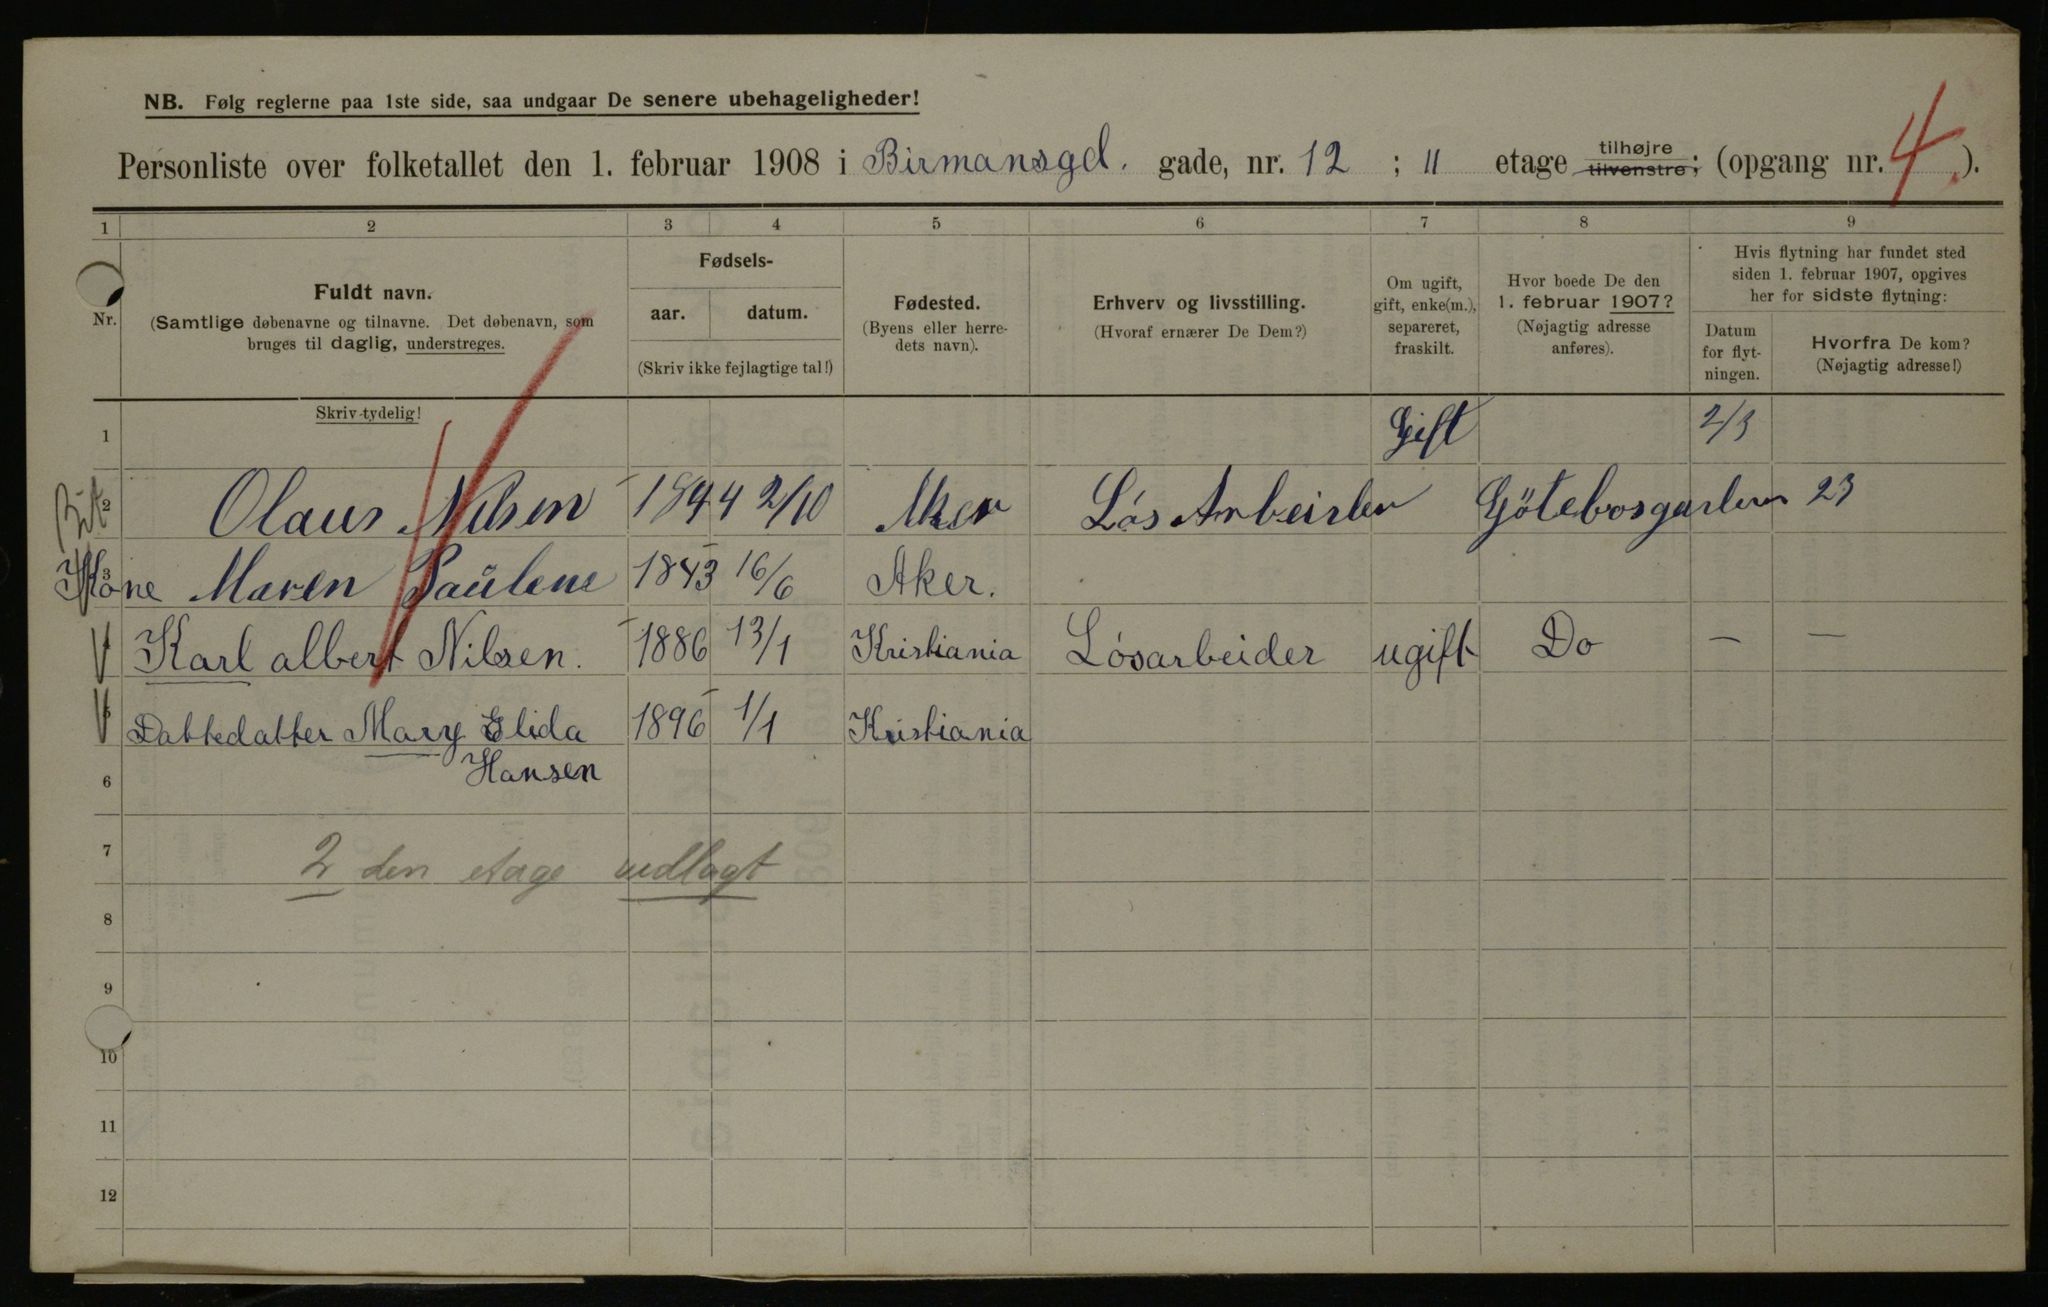 NB. Følg reglerne paa 1ste side, saa undgaar De senere ubehageligheder!
Personliste over folketallet den 1. februar 1908 i Birmansgd. gade, nr. 12 ; II etage tilhøjre tilvenstre; (opgang nr. 4).
1 2 3 4 5 6 7 8 9
Nr.
Fuldt navn.
(Samtlige døbenavne og tilnavne. Det døbenavn, som
bruges til daglig, understreges.
Fødsels-
aar. datum.
(Skriv ikke fejlagtige tal!)
Fødested.
(Byens eller herre-
dets navn).
Erhverv og livsstilling.
(Hvoraf ernærer De Dem?)
Om ugift,
gift, enke(m.),
separeret,
fraskilt.
Hvor boede De den
1. februar 1907?
(Nøjagtig adresse
anføres).
Hvis flytning har fundet sted
siden 1. februar 1907, opgives
her for sidste flytning:
Datum
for flyt-
ningen.
Hvorfra De kom?
(Nøjagtig adresse!)
Skriv tydelig!
1 Gift 2/3
2 Olaus Nilsen 1844 2/10 Aker Løs Arbeider 23
3 Kone Maren Paulene 1843 16/6 Aker.
Karl albert Nilsen. 1886 13/1 Kristiania Løsarbeider ugift Do — —
5 Dattedatter Mary Elida 1896 1/1 Kristiania
Hansen
6
7
2 den etage udlagt
8
9
10
11
12